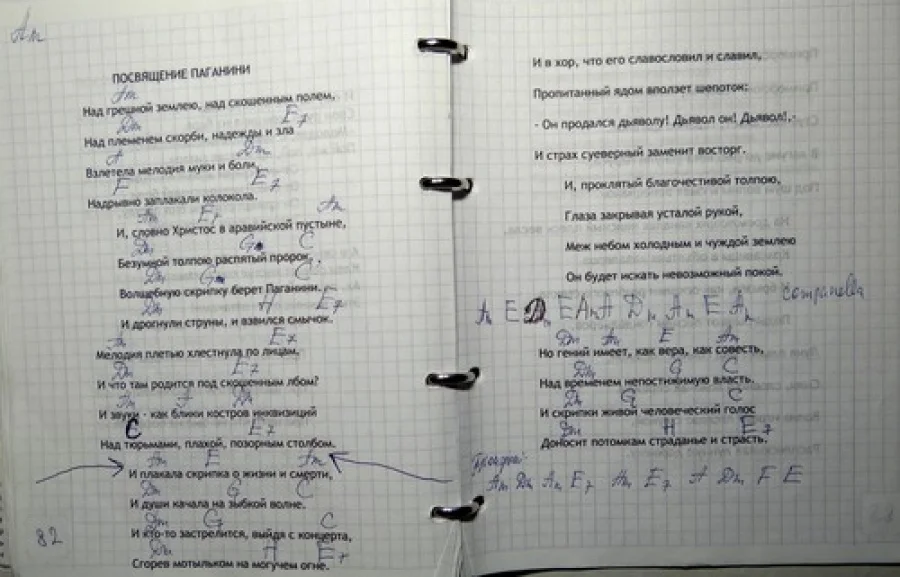 Am
ПОСВЯЩЕНИЕ ПАГАНИНИ
Am
Над грешной землею, над скошенным полем,
Dm E7
Над племенем скорби, надежды и зла
A Dm
Взлетела мелодия муки и боли,
F E7
Надрывно заплакали колокола.
Am E7 Am
И, словно Христос в аравийской пустыне,
Dm Gm C
Безумной толпою распятый пророк,
Dm Gm C
Волшебную скрипку берет Паганини.
Dm H E7
И дрогнули струны, и взвился смычок.
Am E7
Мелодия плетью хлестнула по лицам,
Dm E7
И что там родится под скошенным лбом?
Am A Dm
И звуки - как блики костров инквизиций
C E7
Над тюрьмами, плахой, позорным столбом.
Am E Am
И плакала скрипка о жизни и смерти,
Dm G C
И души качала на зыбкой волне.
Dm G C
И кто-то застрелится, выйдя с концерта,
Dm H E7
Сгорев мотыльком на могучем огне.
82
И в хор, что его славословил и славил,
Пропитанный ядом вползет шепоток:
- Он продался дьяволу! Дьявол он! Дьявол!,-
И страх суеверный заменит восторг.
И, проклятый благочестивой толпою,
Глаза закрывая усталой рукой,
Меж небом холодным и чуждой землею
Он будет искать невозможный покой.
Am E Dm E Am A Dm Am E Am
Dm Am E Am
Но гений имеет, как вера, как совесть,
Dm G C
Над временем непостижимую власть.
Dm G C
И скрипки живой человеческий голос
Dm H E7
Доносит потомкам страданье и страсть.
Проигрыш:
Am Dm Am E7 Am E7 A Dm F E